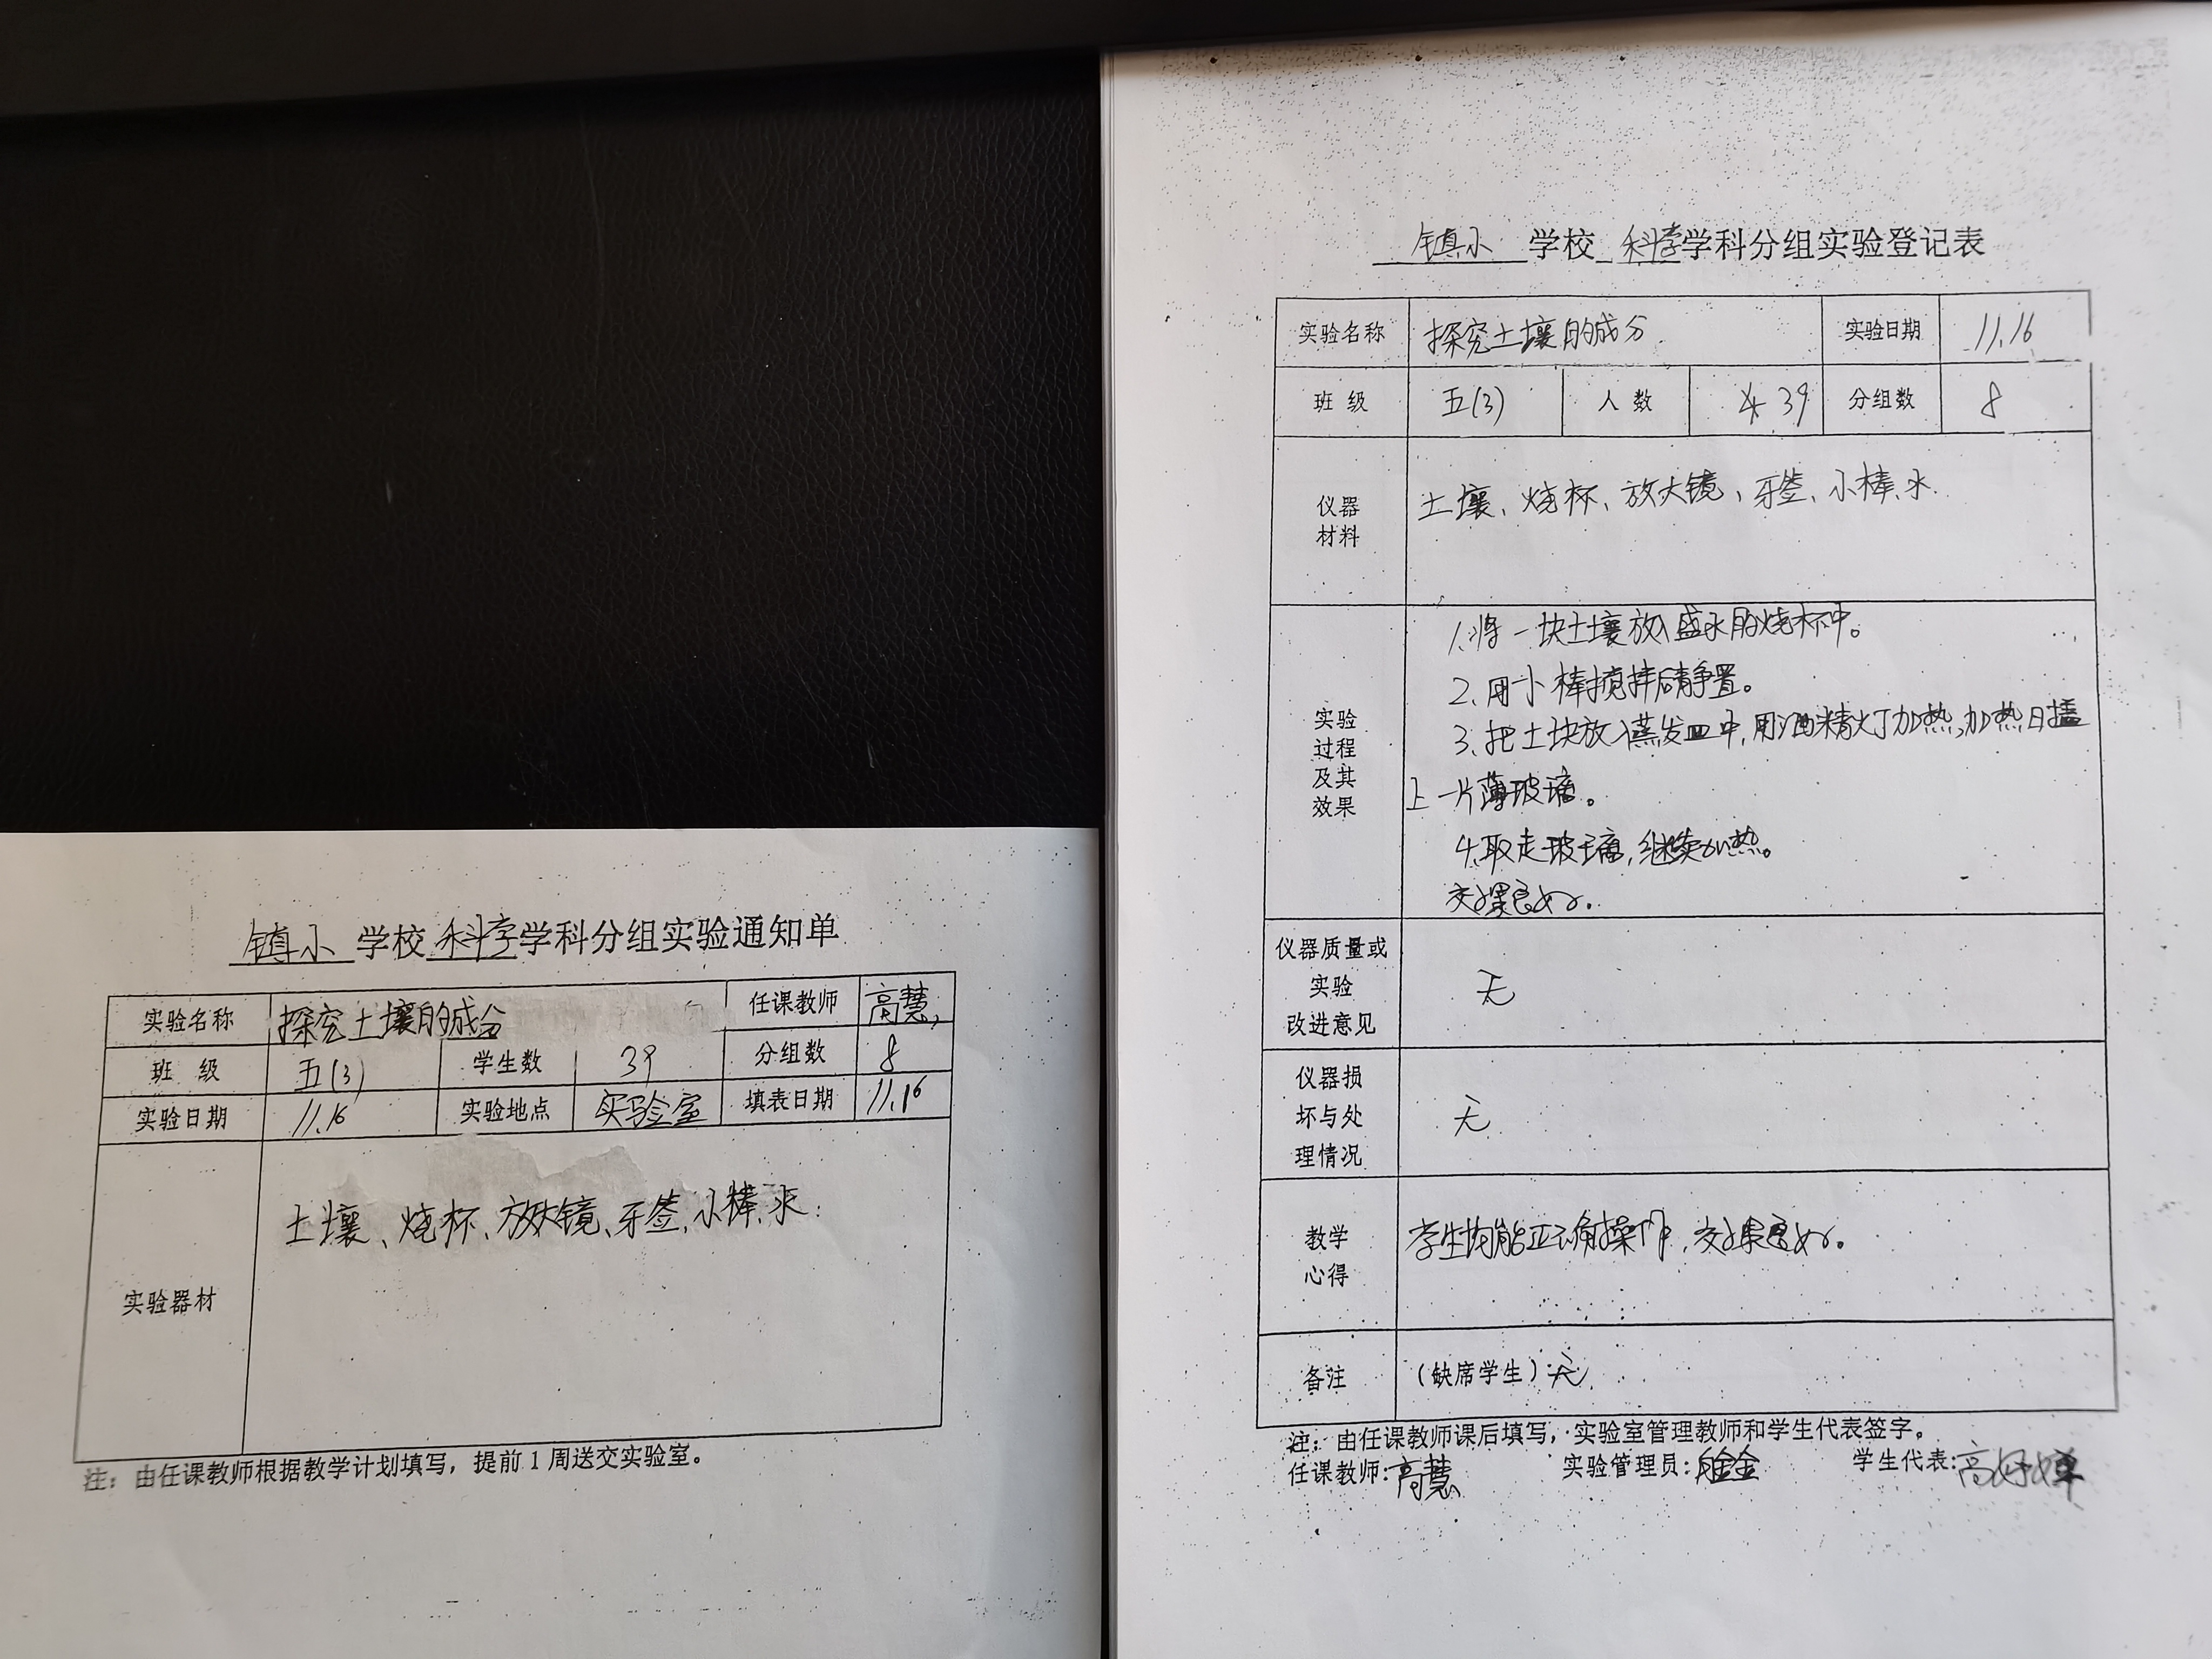 镇小 学校 科学学科分组实验通知单
实验名称 探究土壤的成分 任课教师 高慧
班 级 五(3) 学生数 39 分组数 8
实验日期 11.16 实验地点 实验室 填表日期 11.16
实验器材 土壤、烧杯、放大镜、牙签、小棒、水.
注：由任课教师根据教学计划填写，提前1周送交实验室。
镇小 学校 科学学科分组实验登记表
实验名称 探究土壤的成分 实验日期 11.16
班 级 五(3) 人 数 39 分组数 8
仪器
材料
土壤、烧杯、放大镜、牙签、小棒、水.
实验
过程
及其
效果
1.将一块土壤放入盛水的烧杯中。
2.用小棒搅拌后静置。
3.把土块放入蒸发皿中,用酒精灯加热,加热时盖
上一片薄玻璃。
4.取走玻璃,继续加热。
效果良好.
仪器质量或
实验
改进意见
无
仪器损
坏与处
理情况
无
教学
心得
学生均能正确操作,效果良好。
备注 (缺席学生)无
注：由任课教师课后填写，实验室管理教师和学生代表签字。
任课教师:高慧 实验管理员: 学生代表:高